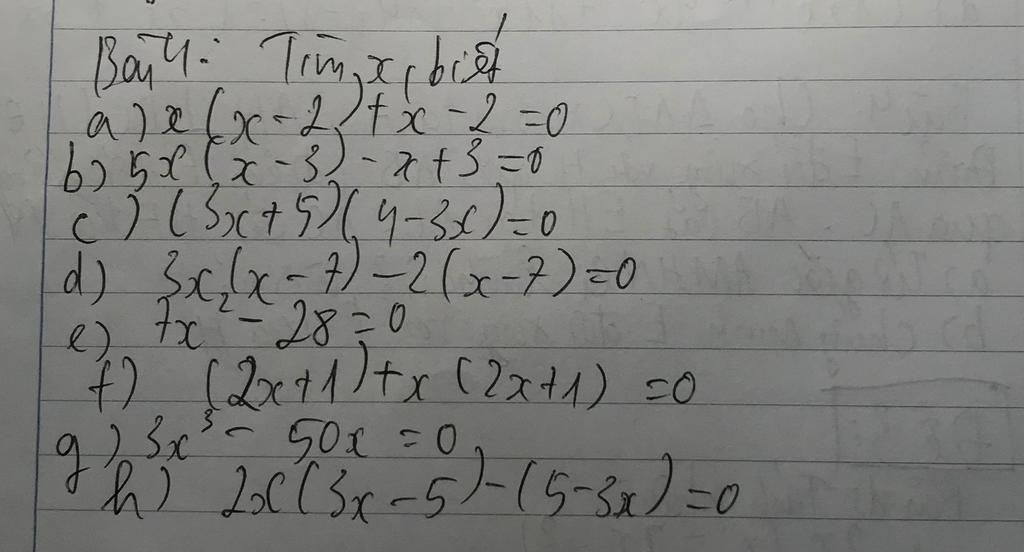 Bài 4: Tìm x, biết
a) x(x-2)+x-2=0
b) 5x(x-3)-x+3=0
c) (3x+5)(4-3x)=0
d) 3x(x-7)-2(x-7)=0
e) 7x²-28=0
f) (2x+1)+x(2x+1)=0
g) 3x³-50x=0
h) 2x(3x-5)-(5-3x)=0